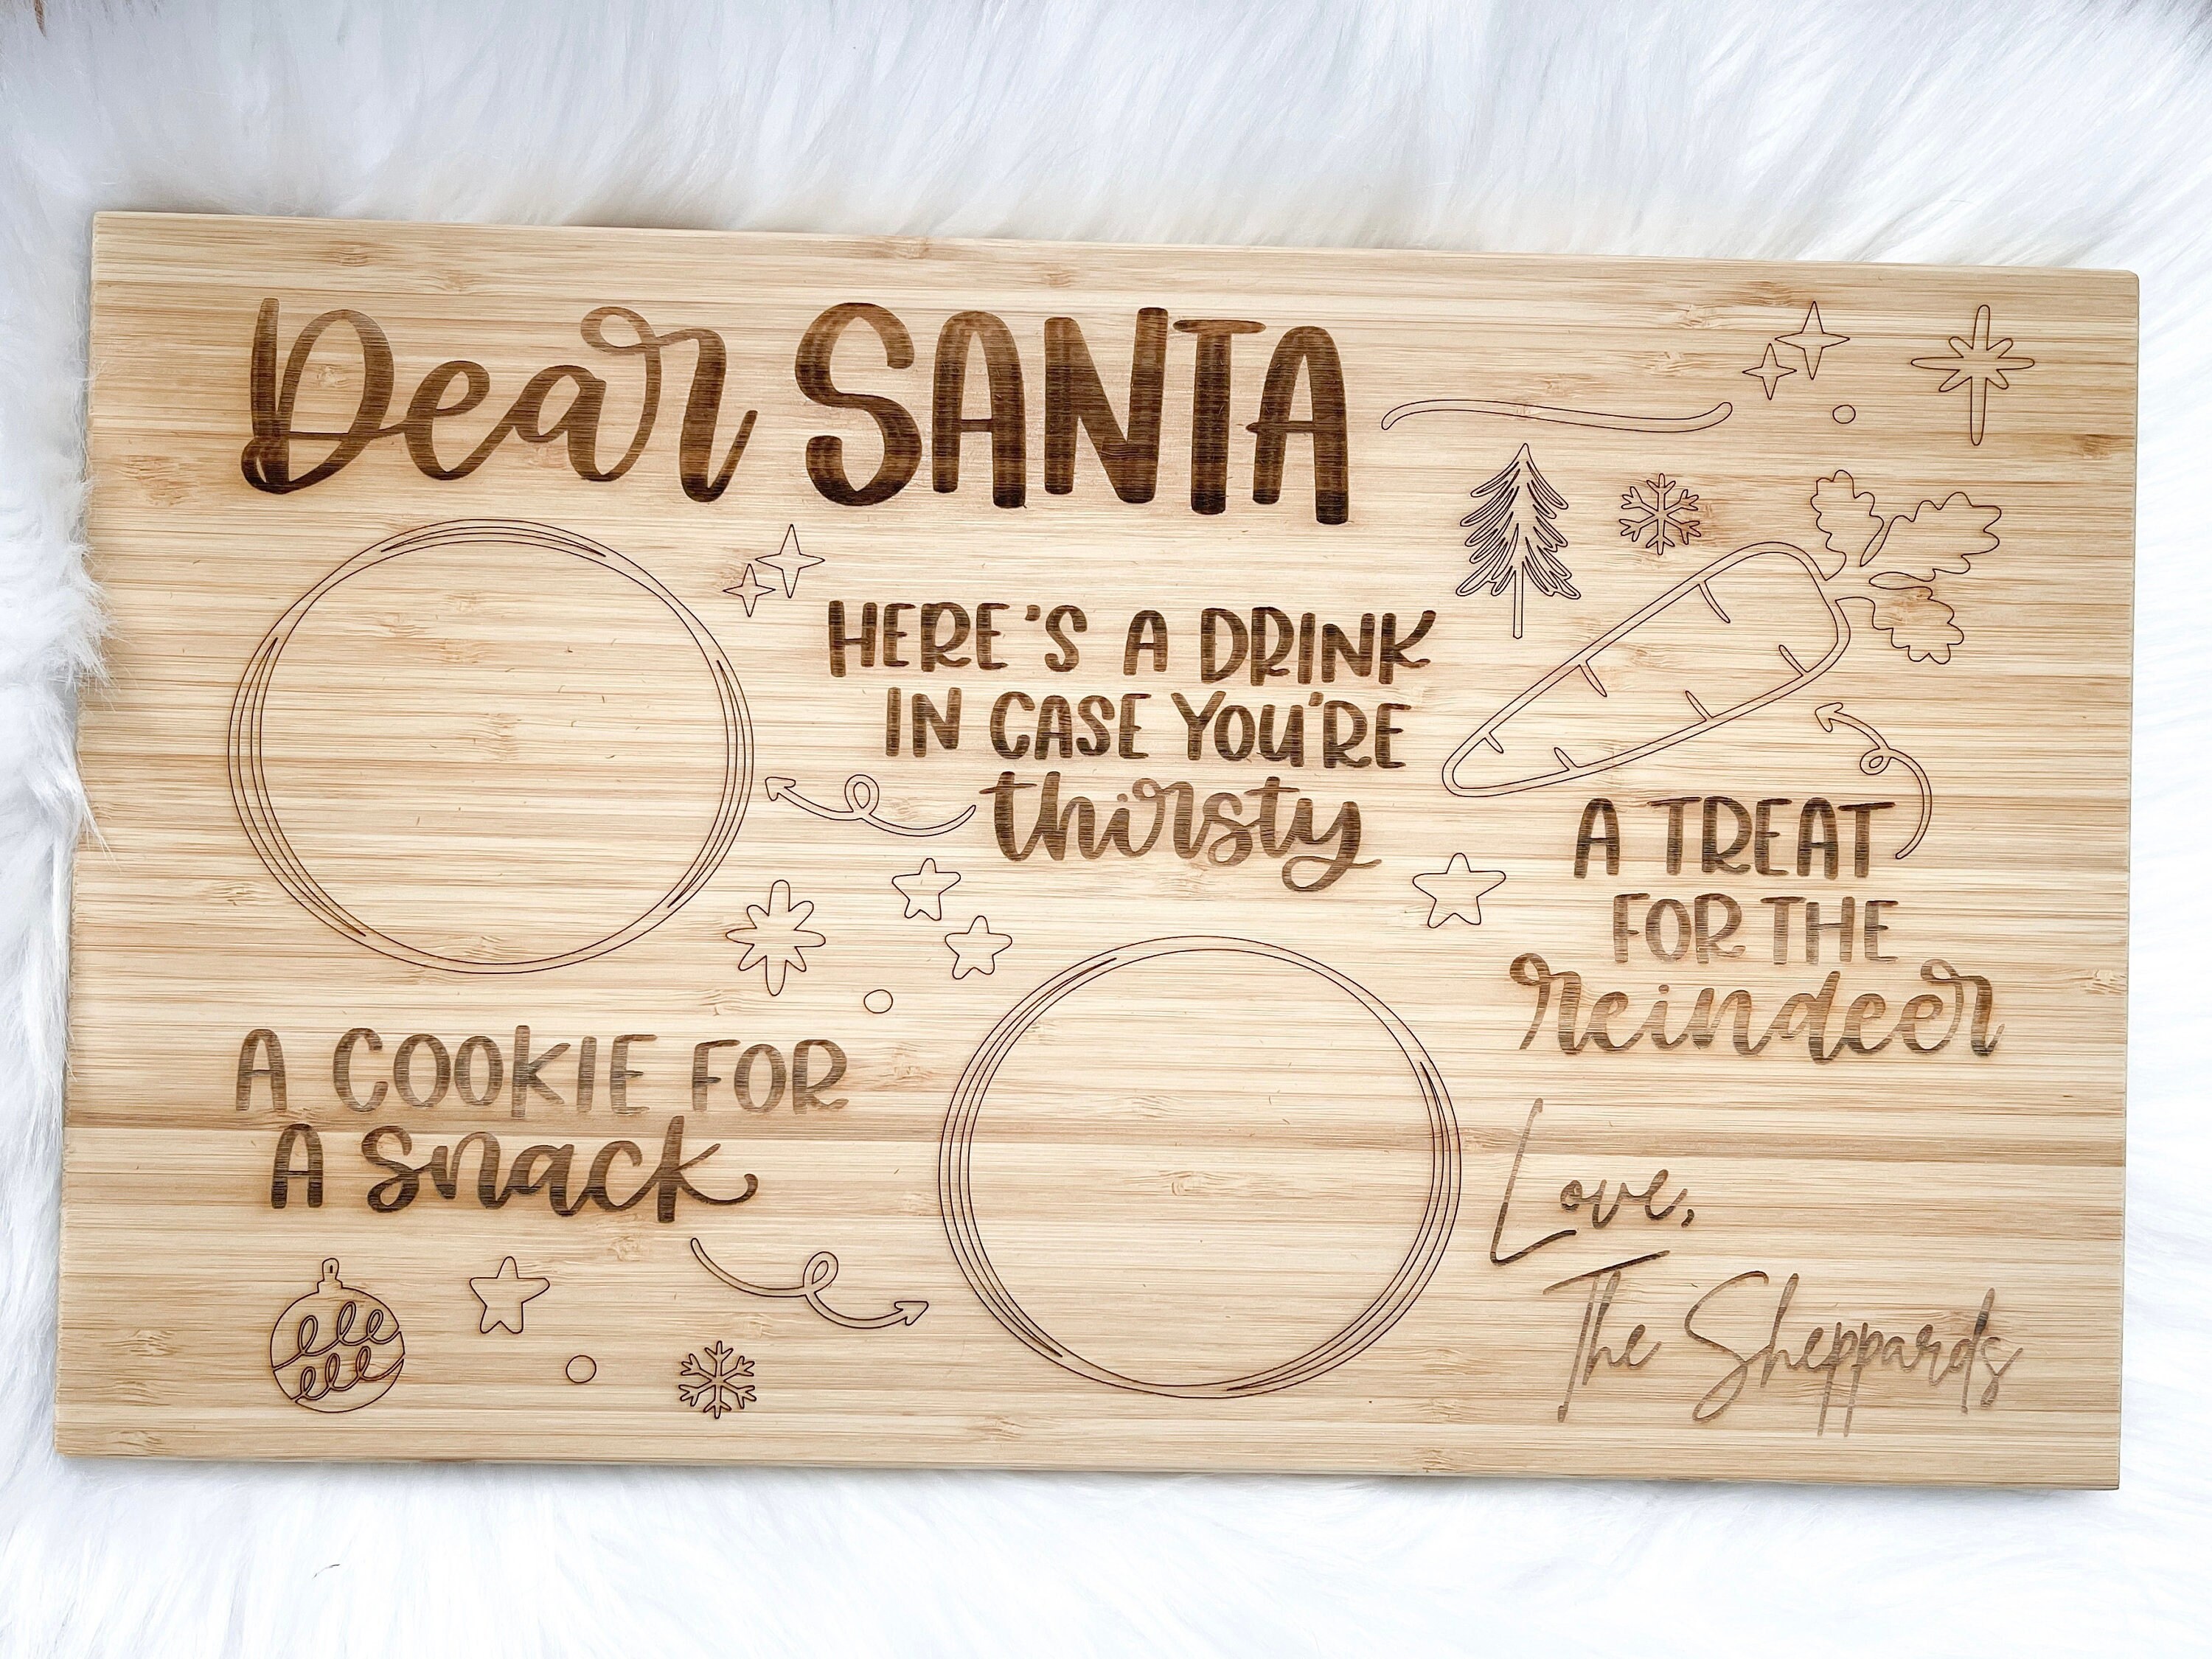 Dear SANTA
HERE'S A DRINK
IN CASE YOU'RE
thirsty
A TREAT
FOR THE
reindeer
A COOKIE FOR
A snack
Love,
The Sheppards